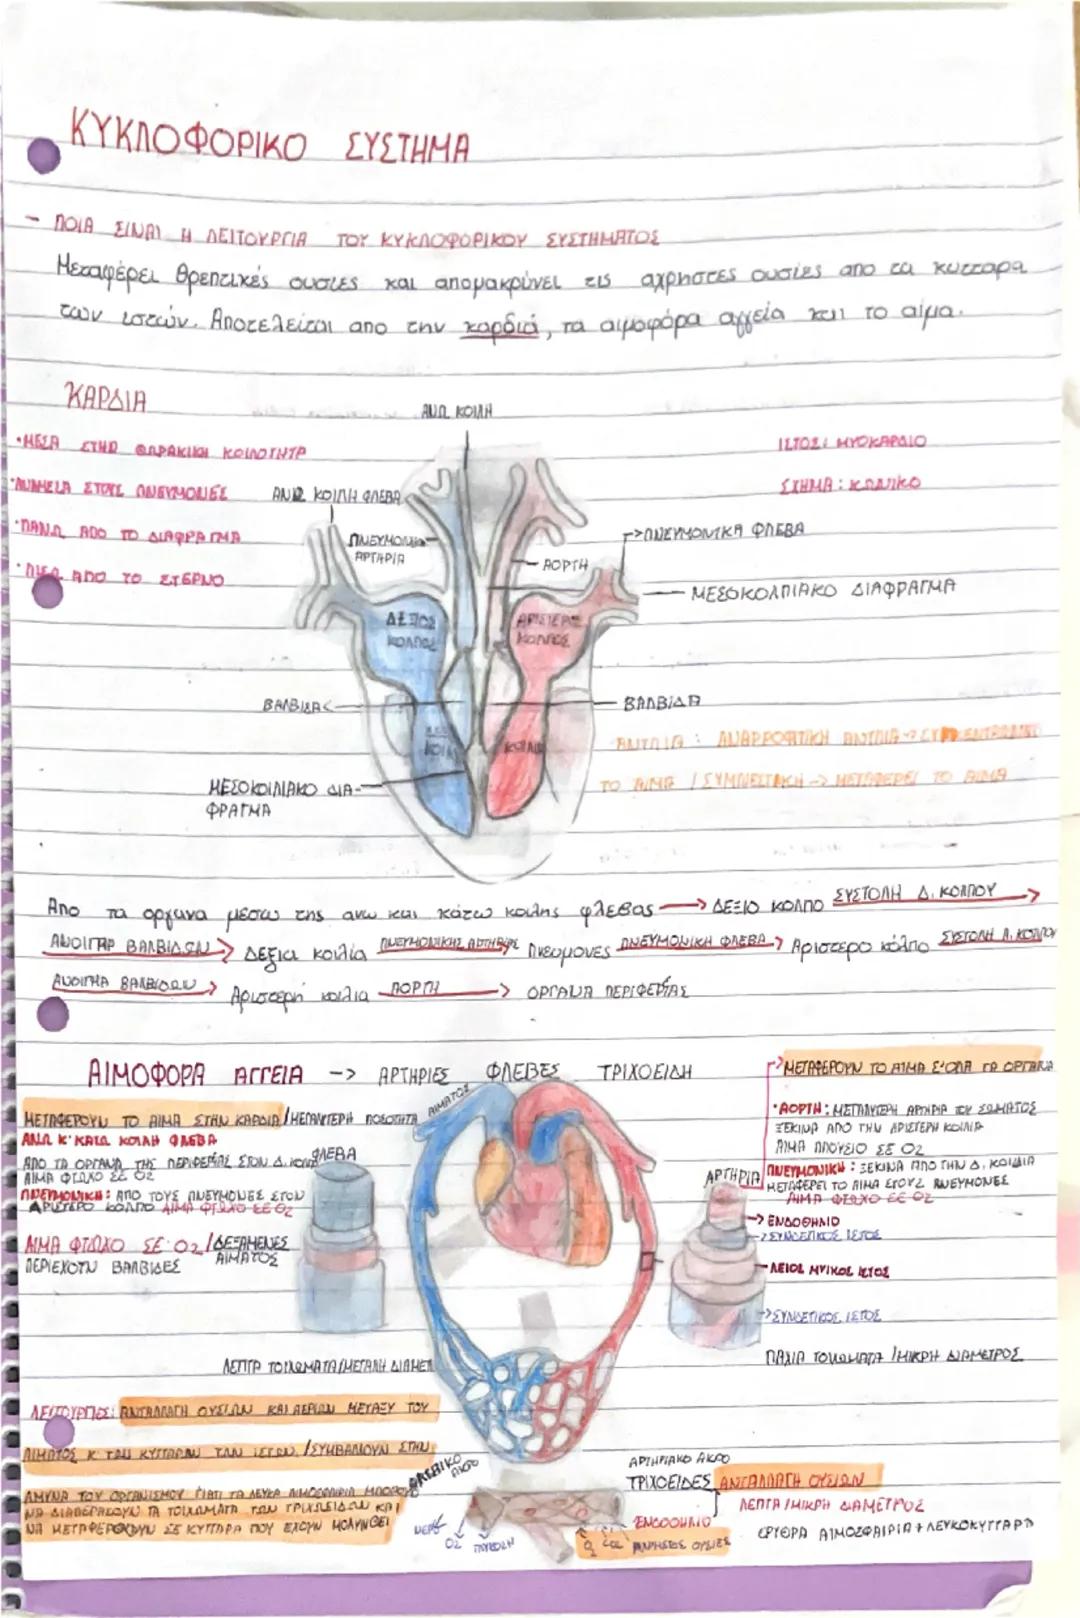 ΚΥΚΛΟΦΟΡΙΚΟ ΣΥΣΤΗΜΑ
- ΠΟΙΑ ΕΙΝΑΙ Η ΛΕΙΤΟΥΡΓΙΑ ΤΟΥ ΚΥΚΛΟΦΟΡΙΚΟΥ ΣΥΣΤΗΜΑΤΟΣ
Μεταφέρει θρεπτικές ουσίες και απομακρύνει τις αχρηστες ουσίες απο τα κυτταρα
των ιστών. Αποτελείται απο την καρδιά, τα αιμοφόρα αγγεία και το αίμα.
ΚΑΡΔΙΑ
•ΜΕΣΑ ΣΤΗΝ ΘΩΡΑΚΙΚΗ ΚΟΙΛΟΤΗΤΑ
•ΑΝΑΜΕΣΑ ΣΤΟΥΣ ΠΝΕΥΜΟΝΕΣ
•ΠΑΝΩ ΑΠΟ ΤΟ ΔΙΑΦΡΑΓΜΑ
•ΠΙΣΩ ΑΠΟ ΤΟ ΣΤΕΡΝΟ
ΑΝΩ ΚΟΙΛΗ
ΑΝΩ ΚΟΙΛΗ ΦΛΕΒΑ
ΠΝΕΥΜΟΝΙΚΗ
ΑΡΤΗΡΙΑ
ΑΟΡΤΗ
ΙΣΤΟΣ: ΜΥΟΚΑΡΔΙΟ
ΣΧΗΜΑ: ΚΩΝΙΚΟ
->ΠΝΕΥΜΟΝΙΚΑ ΦΛΕΒΑ
ΜΕΣΟΚΟΛΠΙΑΚΟ ΔΙΑΦΡΑΓΜΑ
ΔΕΞΙΟΣ
ΚΟΛΠΟΣ
ΑΡΙΣΤΕΡΟΣ
ΚΟΛΠΟΣ
ΒΑΛΒΙΔΑ
ΒΑΛΒΙΔΑ
ΑΝΤΛΙΑ: ΑΝΑΡΡΟΦΗΤΙΚΗ ΑΝΤΛΙΑ ->
ΤΟ ΑΙΜΑ / -> ΜΕΤΑΦΕΡΕΙ ΤΟ ΑΙΜΑ
ΜΕΣΟΚΟΙΛΙΑΚΟ ΔΙΑ-
ΦΡΑΓΜΑ
Απο τα οργανα μέσω της ανω και κάτω κοιλης φλεβας -> ΔΕΞΙΟ ΚΟΛΠΟ ΣΥΣΤΟΛΗ Δ. ΚΟΛΠΟΥ ->
ΑΝΟΙΓΜΑ ΒΑΛΒΙΔΩΝ -> Δεξια κοιλία ΠΝΕΥΜΟΝΙΚΗΣ ΑΡΤΗΡΙΑΣ Πνευμονες ΠΝΕΥΜΟΝΙΚΗ ΦΛΕΒΑ -> Αριστερο κόλπο ΣΥΣΤΟΛΗ Α. ΚΟΛΠΟΥ
ΑΝΟΙΓΜΑ ΒΑΛΒΙΔΩΝ -> Αριστερη κοιλια ΑΟΡΤΗ -> ΟΡΓΑΝΑ ΠΕΡΙΦΕΡΕΙΑΣ
ΑΙΜΟΦΟΡΑ ΑΓΓΕΙΑ -> ΑΡΤΗΡΙΕΣ ΦΛΕΒΕΣ ΤΡΙΧΟΕΙΔΗ
ΜΕΤΑΦΕΡΟΥΝ ΤΟ ΑΙΜΑ ΣΤΗΝ ΚΑΡΔΙΑ/ΜΕΓΑΛΥΤΕΡΗ ΠΟΣΟΤΗΤΑ ΑΙΜΑΤΟΣ
ΑΝΩ Κ' ΚΑΤΩ ΚΟΙΛΗ ΦΛΕΒΑ
ΑΠΟ ΤΑ ΟΡΓΑΝΑ ΤΗΣ ΠΕΡΙΦΕΡΕΙΑΣ ΣΤΟΝ Δ. ΚΟΛΠΟ
ΑΙΜΑ ΦΤΩΧΟ ΣΕ Ο2
ΠΝΕΥΜΟΝΙΚΗ: ΑΠΟ ΤΟΥΣ ΠΝΕΥΜΟΝΕΣ ΣΤΟΝ
ΑΡΙΣΤΕΡΟ ΚΟΛΠΟ ΑΙΜΑ ΦΤΩΧΟ ΣΕ Ο2
ΑΙΜΑ ΦΤΩΧΟ ΣΕ Ο2/ΔΕΞΑΜΕΝΕΣ
ΑΙΜΑΤΟΣ
ΠΕΡΙΕΧΟΥΝ ΒΑΛΒΙΔΕΣ
ΦΛΕΒΑ
ΛΕΠΤΑ ΤΟΙΧΩΜΑΤΑ/ΜΕΓΑΛΗ ΔΙΑΜΕΤ
->ΜΕΤΑΦΕΡΟΥΝ ΤΟ ΑΙΜΑ Σ'ΟΛΑ ΤΑ ΟΡΓΑΝΑ
•ΑΟΡΤΗ: ΜΕΓΑΛΥΤΕΡΗ ΑΡΤΗΡΙΑ ΤΟΥ ΣΩΜΑΤΟΣ
ΞΕΚΙΝΑ ΑΠΟ ΤΗΝ ΑΡΙΣΤΕΡΗ ΚΟΙΛΙΑ
ΑΙΜΑ ΠΛΟΥΣΙΟ ΣΕ Ο2
ΑΡΤΗΡΙΑ
ΠΝΕΥΜΟΝΙΚΗ: ΞΕΚΙΝΑ ΑΠΟ ΤΗΝ Δ. ΚΟΙΛΙΑ
ΜΕΤΑΦΕΡΕΙ ΤΟ ΑΙΜΑ ΣΤΟΥΣ ΠΝΕΥΜΟΝΕΣ
ΑΙΜΑ ΦΤΩΧΟ ΣΕ Ο2
-> ΕΝΔΟΘΗΛΙΟ
->ΣΥΝΔΕΤΙΚΟΣ ΙΣΤΟΣ
ΛΕΙΟΣ ΜΥΙΚΟΣ ΙΣΤΟΣ
->ΣΥΝΔΕΤΙΚΟΣ ΙΣΤΟΣ
ΠΑΧΙΑ ΤΟΙΧΩΜΑΤΑ /ΜΙΚΡΗ ΔΙΑΜΕΤΡΟΣ
ΛΕΙΤΟΥΡΓΙΕΣ: ΑΝΤΑΛΛΑΓΗ ΟΥΣΙΩΝ ΚΑΙ ΑΕΡΙΩΝ ΜΕΤΑΞΥ ΤΟΥ
ΑΙΜΑΤΟΣ Κ ΤΩΝ ΚΥΤΤΑΡΩΝ ΤΩΝ ΙΣΤΩΝ. /ΣΥΜΒΑΛΛΟΥΝ ΣΤΗΝ
ΑΜΥΝΑ ΤΟΥ ΟΡΓΑΝΙΣΜΟΥ ΓΙΑΤΙ ΤΑ ΛΕΥΚΑ ΑΙΜΟΣΦΑΙΡΙΑ ΜΠΟΡΟΥΝ
ΝΑ ΔΙΑΠΕΡΑΣΟΥΝ ΤΑ ΤΟΙΧΩΜΑΤΑ ΤΩΝ ΤΡΙΧΟΕΙΔΩΝ ΚΑΙ
ΝΑ ΜΕΤΑΦΕΡΘΟΥΝ ΣΕ ΚΥΤΤΑΡΑ ΠΟΥ ΕΧΟΥΝ ΜΟΛΥΝΘΕΙ
ΦΛΕΒΙΚΟ
ΑΚΡΟ
ΑΡΤΗΡΙΑΚΟ ΑΚΡΟ
ΤΡΙΧΟΕΙΔΕΣ ΑΝΤΑΛΛΑΓΗ ΟΥΣΙΩΝ
ΛΕΠΤΑ/ΜΙΚΡΗ ΔΙΑΜΕΤΡΟΣ
ΕΝΔΟΘΗΛΙΟ
ΕΡΥΘΡΑ ΑΙΜΟΣΦΑΙΡΙΑ+ΛΕΥΚΟΚΥΤΤΑΡΑ
ΝΕΡΟ
Ο2
ΓΛΥΚΟΖΗ
ΑΧΡΗΣΤΕΣ ΟΥΣΙΕΣ